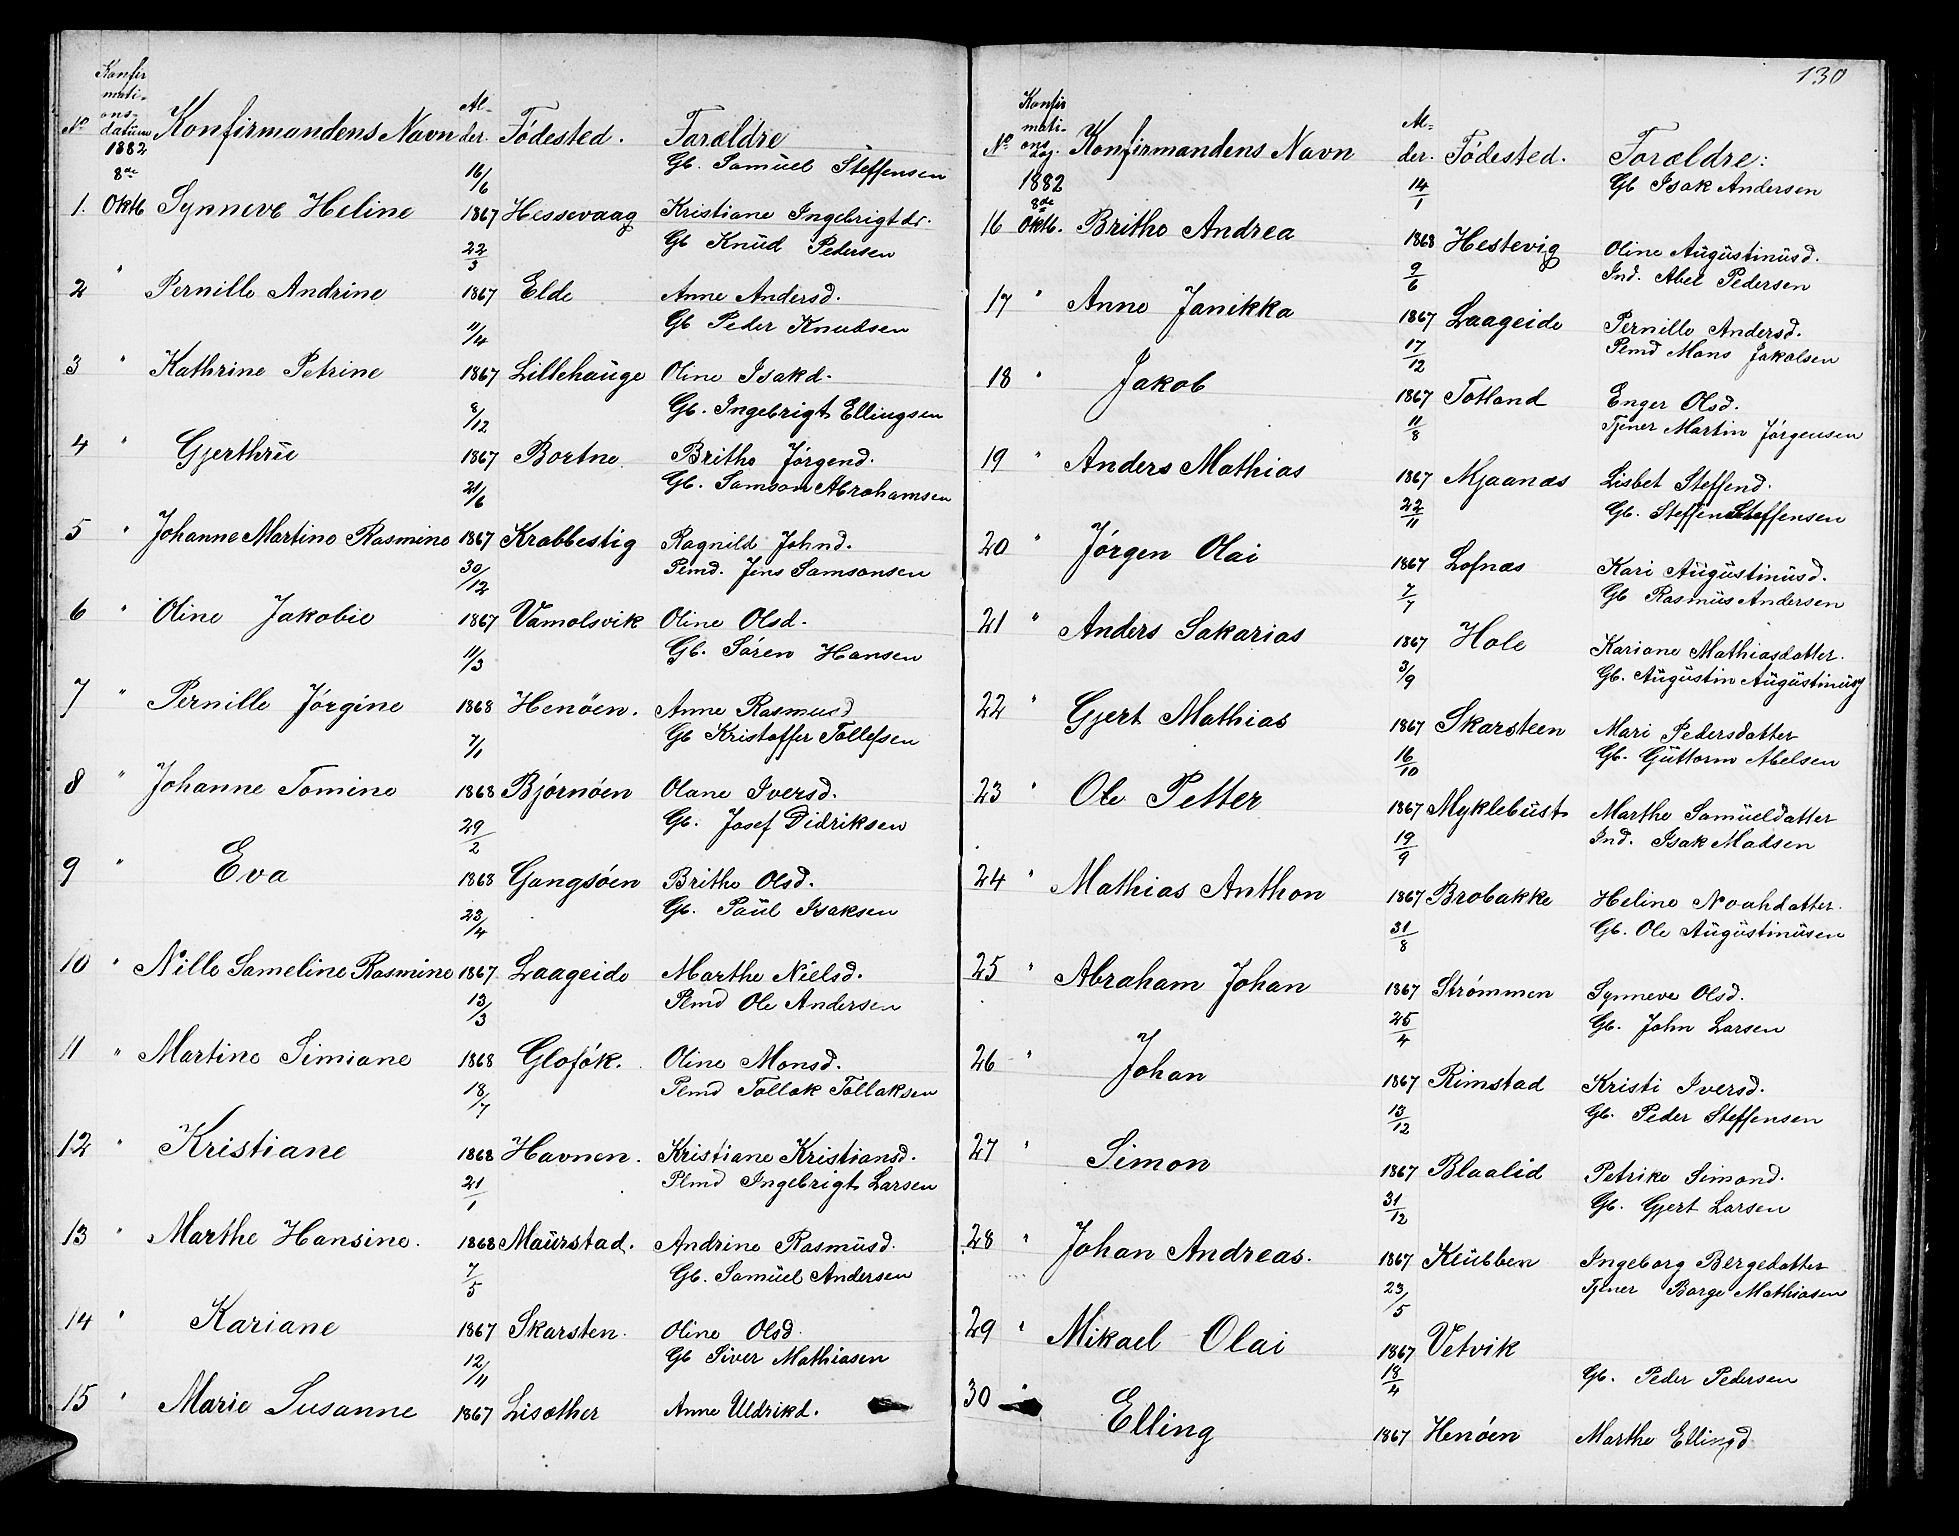 Konfir
mati-
ons-
No datum Konfirmandens Navn Al-
der. Födested. Forældre
1882
8de 16/6 Gb. Samuel Steffensen
1. Oktb Synneve Heline 1867 Hessevaag Kristiane Ingebrigtdr.
22/3 Gb Knud Pedersen
2 " Pernille Andrine 1867 Elde Anne Andersd.
11/4 Gb Peder Knudsen
3 " Kathrine Petrine 1867 Lillehauge Oline Isakd.
8/12 Gb. Ingebrigt Ellingsen
4 " Gjerthru 1867 Bortne Brithe Jörgend.
21/6 Gb. Samson Abrahamsen
5 " Johanne Martine Rasmine 1867 Krabbestig Ragnild Johnd.
30/12 Plmd. Jens Samsonsen
6 " Oline Jakobie 1867 Vamolsvik Oline Olsd.
11/3 Gb. Sören Hansen
7 " Pernille Jörgine 1868 Henöen. Anne Rasmusd
7/1 Gb Kristoffer Tollefsen
8 " Johanne Tomine 1868 Björnöen Olane Iversd.
29/2 Gb. Josef Didriksen
9 " Eva 1868 Gangsöen Brithe Olsd.
23/4 Gb. Paul Isaksen
10 " Nille Sameline Rasmine 1867 Laageide Marthe Nielsd.
13/3 Plmd Ole Andersen
11 " Martine Simiane 1868 Glofök. Oline Monsd.
18/7 Plmd Tollak Tollaksen
12 " Kristiane 1868 Havnen. Kristiane Kristiansd.
21/1 Plmd Ingebrigt Larsen
13 " Marthe Hansine. 1868 Maurstad. Andrine Rasmusd.
7/5 Gb. Samuel Andersen
14 " Kariane 1867 Skarsten. Oline Olsd
12/4 Gb Siver Mathiasen
15 " Marie Susanne 1867 Lisæther Anne Uldrikd.
130
Konfir
mati-
No ons Konfirmandens Navn Al-
der. Födested. Forældre:
1882 14/1 Gb Isak Andersen
8de
16 Oktb. Brithe Andrea 1868 Hestevig Oline Augustinusd.
9/6 Ind. Abel Pedersen
17 " Anne Janikka 1867 Laageide Pernille Andersd.
17/12 Plmd Mons Jakobsen
18 " Jakob 1867 Totland Enger Olsd.
11/8 Tjener Martin Jörgensen
19 " Anders Mathias 1867 Mjaanæs Lisbet Steffend.
22/11 Gb. Steffen Steffensen
20 " Jörgen Olai 1867 Lofnæs Kari Augustinusd.
7/7 Gb Rasmus Andersen
21 " Anders Sakarias 1867 Hole Kariane Mathiasdatter.
3/9 Gb. Augustin Augustinus
22 " Gjert Mathias 1867 Skarsteen Mari Pedersdatter
16/10 Gb. Guttorm Abelsen
23 " Ole Petter 1867 Myklebust Marthe Samueldatter
19/9 Ind. Isak Madsen
24 " Mathias Anthon 1867 Brobakke Heline Noahdatter.
31/8 Gb. Ole Augustinusen
25 " Abraham Johan 1867 Strømmen Synneve Olsd.
25/4 Gb. John Larsen
26 " Johan 1867 Rimstad Kristi Iversd.
13/12 Gb. Peder Steffensen
27 " Simon 1867 Blaalid Petrike Simond.
31/12 Gb. Gjert Larsen
28 " Johan Andreas. 1867 Klubben Ingeborg Bergedatter
23/5 Tjener Börge Mathiasen
29 " Mikael Olai 1867 Vetvik
18/4 Gb. Peder Pedersen
30 " Elling 1867 Henöen Marthe Ellingd